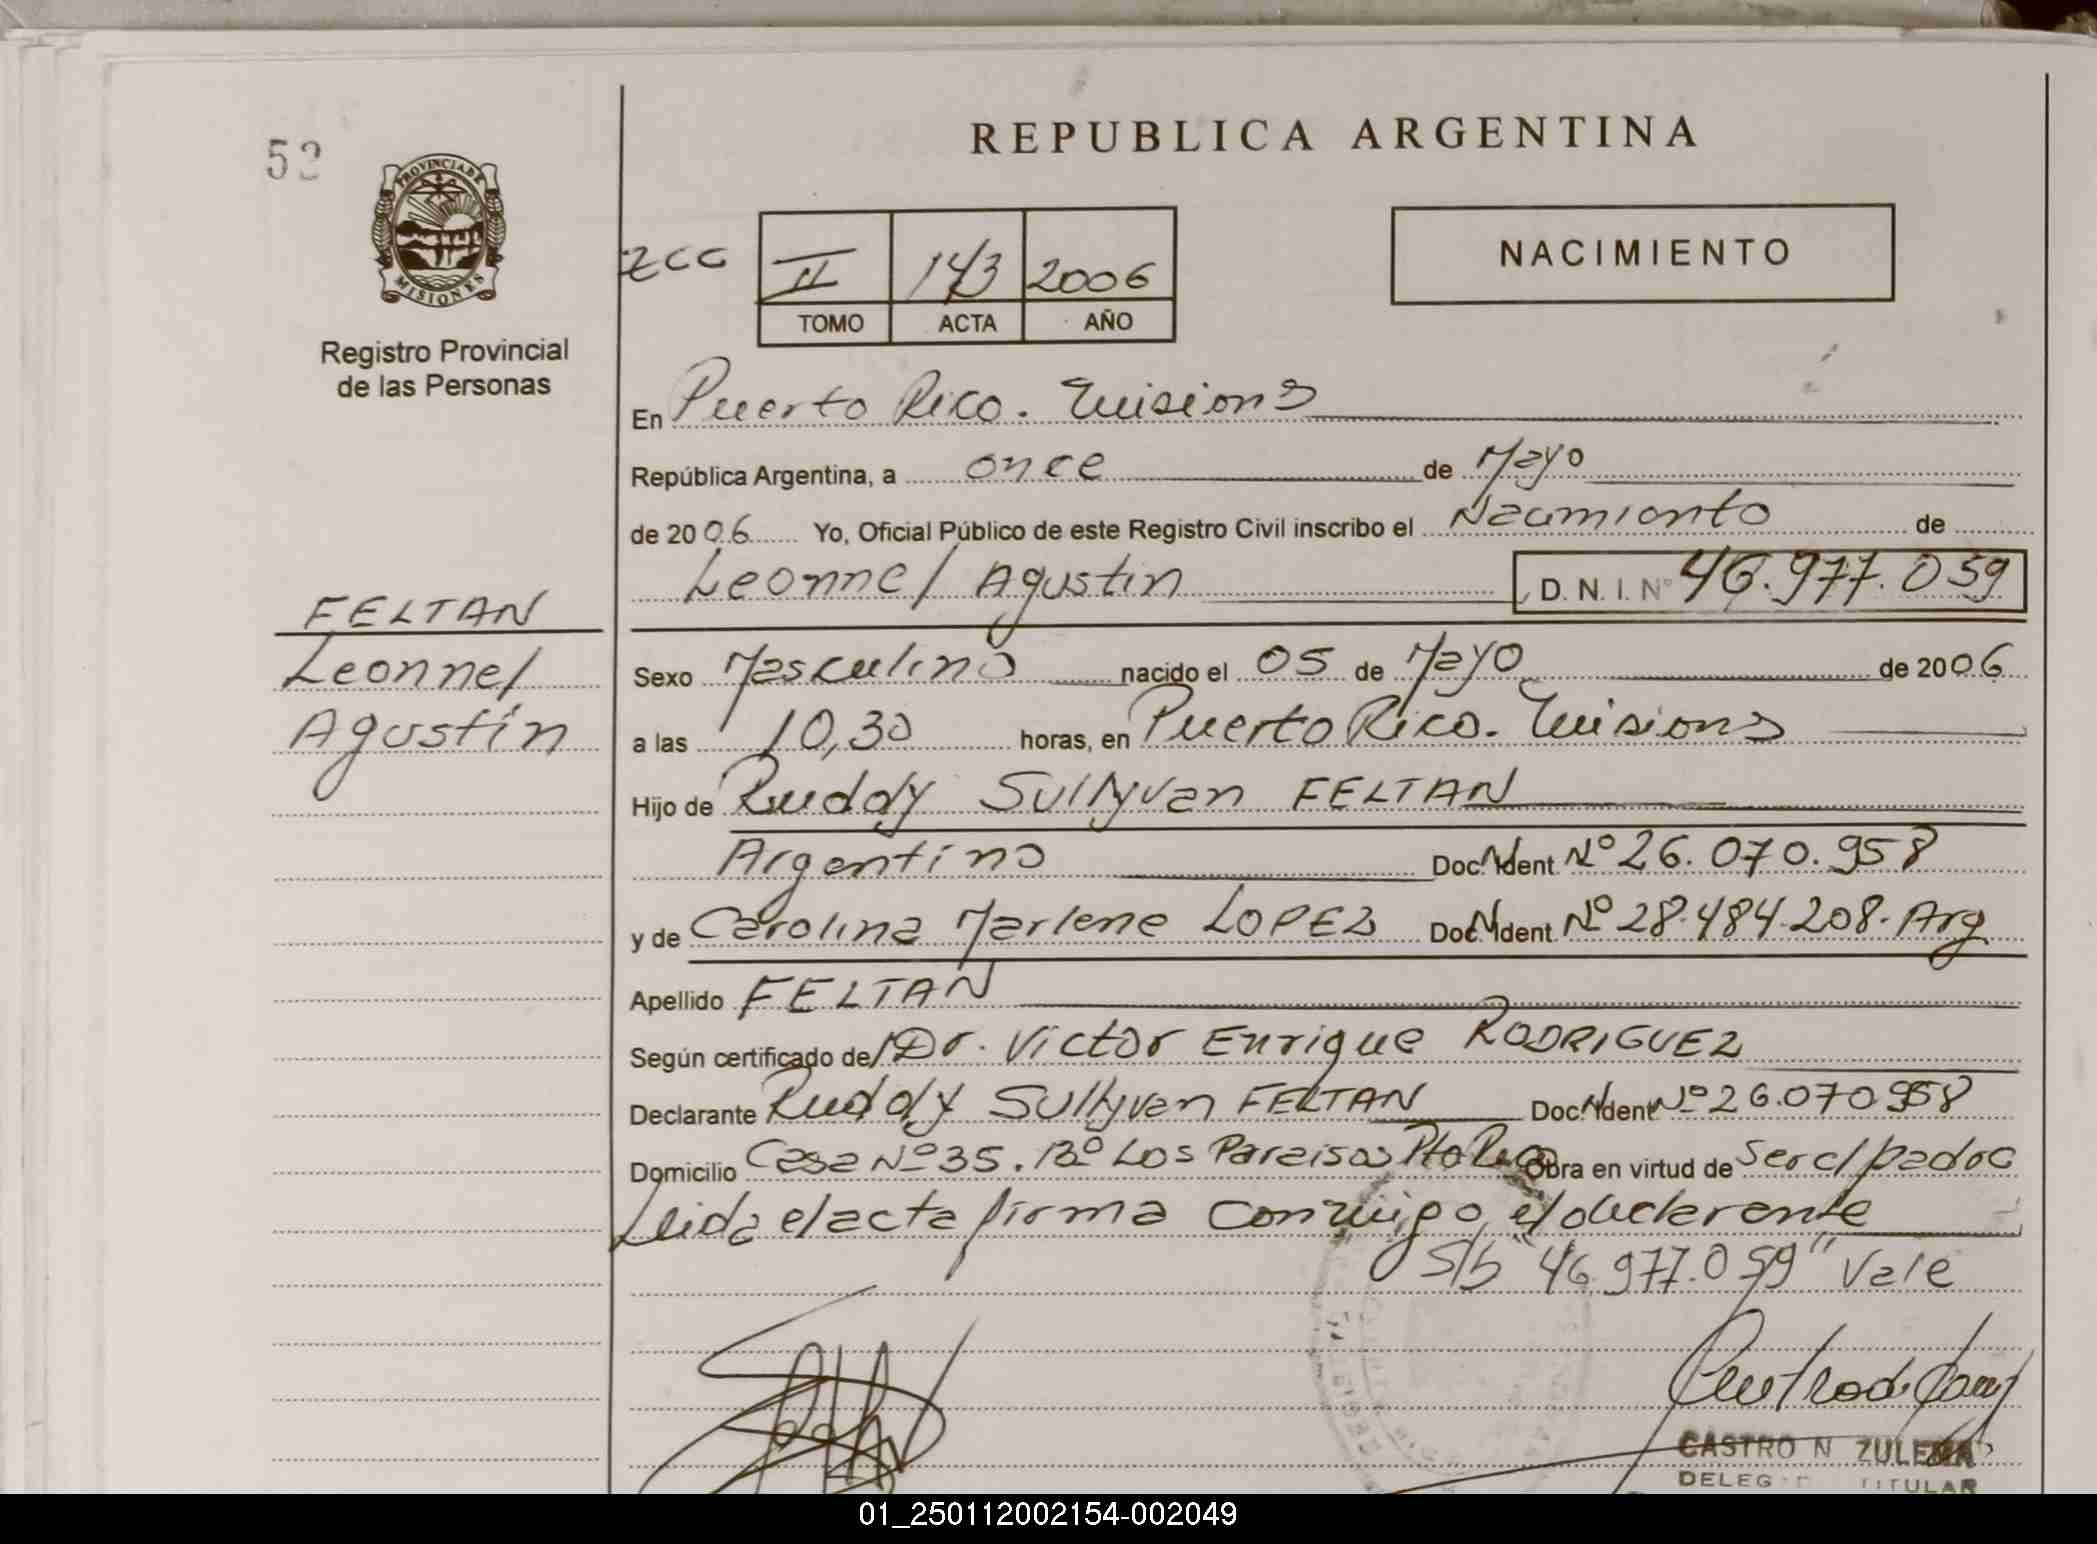 REPUBLICA ARGENTINA
52
PROVINCIA DE
MISIONES
Registro Provincial
de las Personas
ZCC
II 143 2006
TOMO ACTA AÑO
NACIMIENTO
En Puerto Rico. Misiones
República Argentina, a once de Mayo
de 2006 Yo, Oficial Público de este Registro Civil inscribo el Nacimiento de
Leonnel Agustin D. N. I. Nº 46.977.059
FELTAN
Leonnel
Agustín
Sexo Masculino nacido el 05 de Mayo de 2006
a las 10,30 horas, en Puerto Rico. Misiones
Hijo de Ruddy Sullyvan FELTAN
Argentino Doc. Ident. Nº 26.070.958
y de Carolina Marlene LOPEZ Doc. Ident. Nº 28.484.208. Arg
Apellido FELTAN
Según certificado de Dr. Victor Enrique RODRIGUEZ
Declarante Ruddy Sullyvan FELTAN Doc. Ident Nº 26.070.958
Domicilio Casa Nº 35. Bº Los Paraisos Pto Rico Obra en virtud de ser el padre
Leida el acta firma conmigo el declarante
S/b "46.977.059" Vale
CASTRO N ZULEMA
TITULAR
01_250112002154-002049